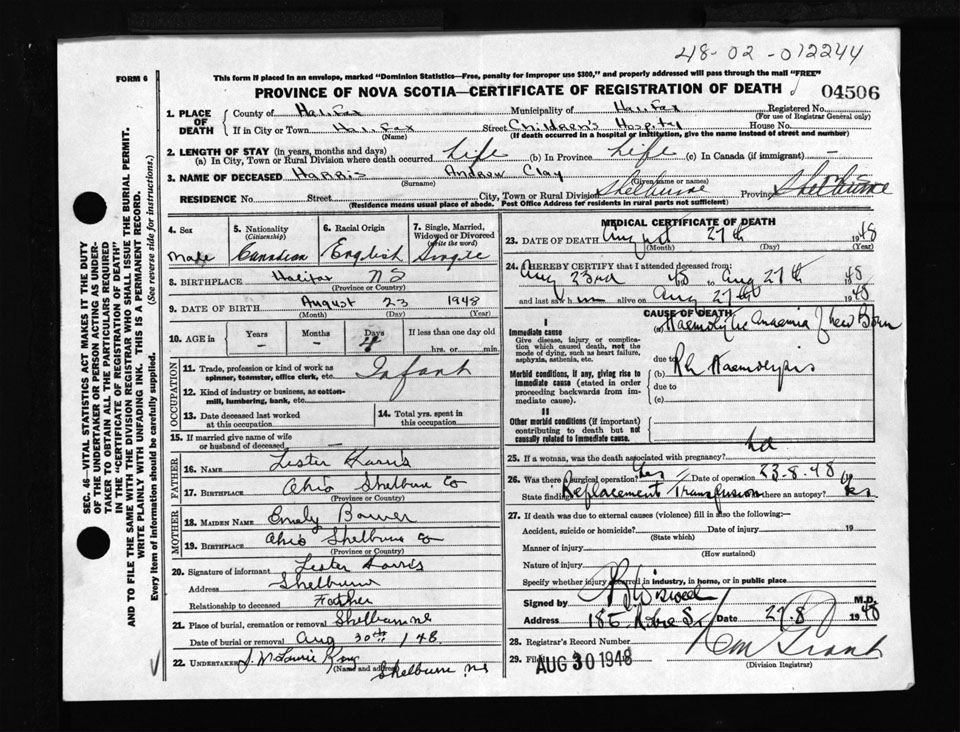 48-02-012244
FORM 6
This form if placed in an envelope, marked "Dominion Statistics—Free, penalty for improper use $300," and properly addressed will pass through the mail "FREE"
PROVINCE OF NOVA SCOTIA—CERTIFICATE OF REGISTRATION OF DEATH 04506
1. PLACE OF DEATH County of Halifax Municipality of Halifax Registered No.
(For use of Registrar General only)
If in City or Town Halifax Street Children's Hospital House No.
(Name) (If death occurred in a hospital or institution, give the name instead of street and number)
2. LENGTH OF STAY (in years, months and days)
(a) In City, Town or Rural Division where death occurred Life (b) In Province Life (c) In Canada (if immigrant) —
3. NAME OF DECEASED Harris Andrew Clay
(Surname) (Given name or names)
RESIDENCE No. Street City, Town or Rural Division Shelburne Province Shelburne
(Residence means usual place of abode. Post Office Address for residents in rural parts not sufficient)
SEC. 46—VITAL STATISTICS ACT MAKES IT THE DUTY
OF THE UNDERTAKER OR PERSON ACTING AS UNDER-
TAKER TO OBTAIN ALL THE PARTICULARS REQUIRED
IN THE "CERTIFICATE OF REGISTRATION OF DEATH"
AND TO FILE THE SAME WITH THE DIVISION REGISTRAR WHO SHALL ISSUE THE BURIAL PERMIT.
WRITE PLAINLY WITH UNFADING INK. THIS IS A PERMANENT RECORD.
Every item of information should be carefully supplied. (See reverse side for instructions.)
4. Sex 5. Nationality (Citizenship) 6. Racial Origin 7. Single, Married, Widowed or Divorced (write the word)
Male Canadian English Single
8. BIRTHPLACE Halifax NS
(Province or Country)
9. DATE OF BIRTH August 23 1948
(Month) (Day) (Year)
10. AGE in Years Months Days If less than one day old
— — 4 hrs. or min.
OCCUPATION
11. Trade, profession or kind of work as spinner, teamster, office clerk, etc. Infant
12. Kind of industry or business, as cotton-mill, lumbering, bank, etc.
13. Date deceased last worked at this occupation 14. Total yrs. spent in this occupation
15. If married give name of wife or husband of deceased —
FATHER
16. NAME Lester Harris
17. BIRTHPLACE Ohio Shelburne Co
(Province or Country)
MOTHER
18. MAIDEN NAME Emily Bower
19. BIRTHPLACE Ohio Shelburne Co
(Province or Country)
20. Signature of informant Lester Harris
Address Shelburne
Relationship to deceased Father
21. Place of burial, cremation or removal Shelburne NS
Date of burial or removal Aug 30th 148
22. UNDERTAKER
(Name and address) Shelburne NS
MEDICAL CERTIFICATE OF DEATH
23. DATE OF DEATH August 27th 1948
(Month) (Day) (Year)
24. I HEREBY CERTIFY that I attended deceased from:
Aug 23rd 48 to Aug 27th 1948
and last saw h im alive on Aug 27th 1948
CAUSE OF DEATH
I
Immediate cause (a) Haemolytic Anaemia of New Born
Give disease, injury or complication which caused death, not the mode of dying, such as heart failure, asphyxia, asthenia, etc.
due to
Morbid conditions, if any, giving rise to immediate cause (stated in order proceeding backwards from immediate cause). (b) Rh Haemolysis
due to
(c)
II
Other morbid conditions (if important) contributing to death but not causally related to immediate cause.
25. If a woman, was the death associated with pregnancy? no
26. Was there a surgical operation? Yes Date of operation 23-8-48
State findings Replacement Transfusion Was there an autopsy? Yes
27. If death was due to external causes (violence) fill in also the following:—
Accident, suicide or homicide? Date of injury 19
(State which)
Manner of injury
(How sustained)
Nature of injury
Specify whether injury occurred in industry, in home, or in public place
Signed by M.D.
Address 186 St Date 27.8 1948
28. Registrar's Record Number
29. Filed AUG 30 1948
(Division Registrar)